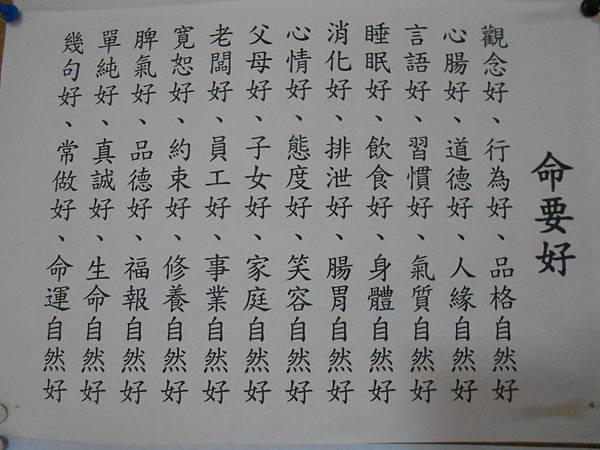 命要好
觀念好、行為好、品格自然好
心腸好、道德好、人緣自然好
言語好、習慣好、氣質自然好
睡眠好、飲食好、身體自然好
消化好、排泄好、腸胃自然好
心情好、態度好、笑容自然好
父母好、子女好、家庭自然好
老闆好、員工好、事業自然好
寬恕好、約束好、修養自然好
脾氣好、品德好、福報自然好
單純好、真誠好、生命自然好
幾句好、常做好、命運自然好